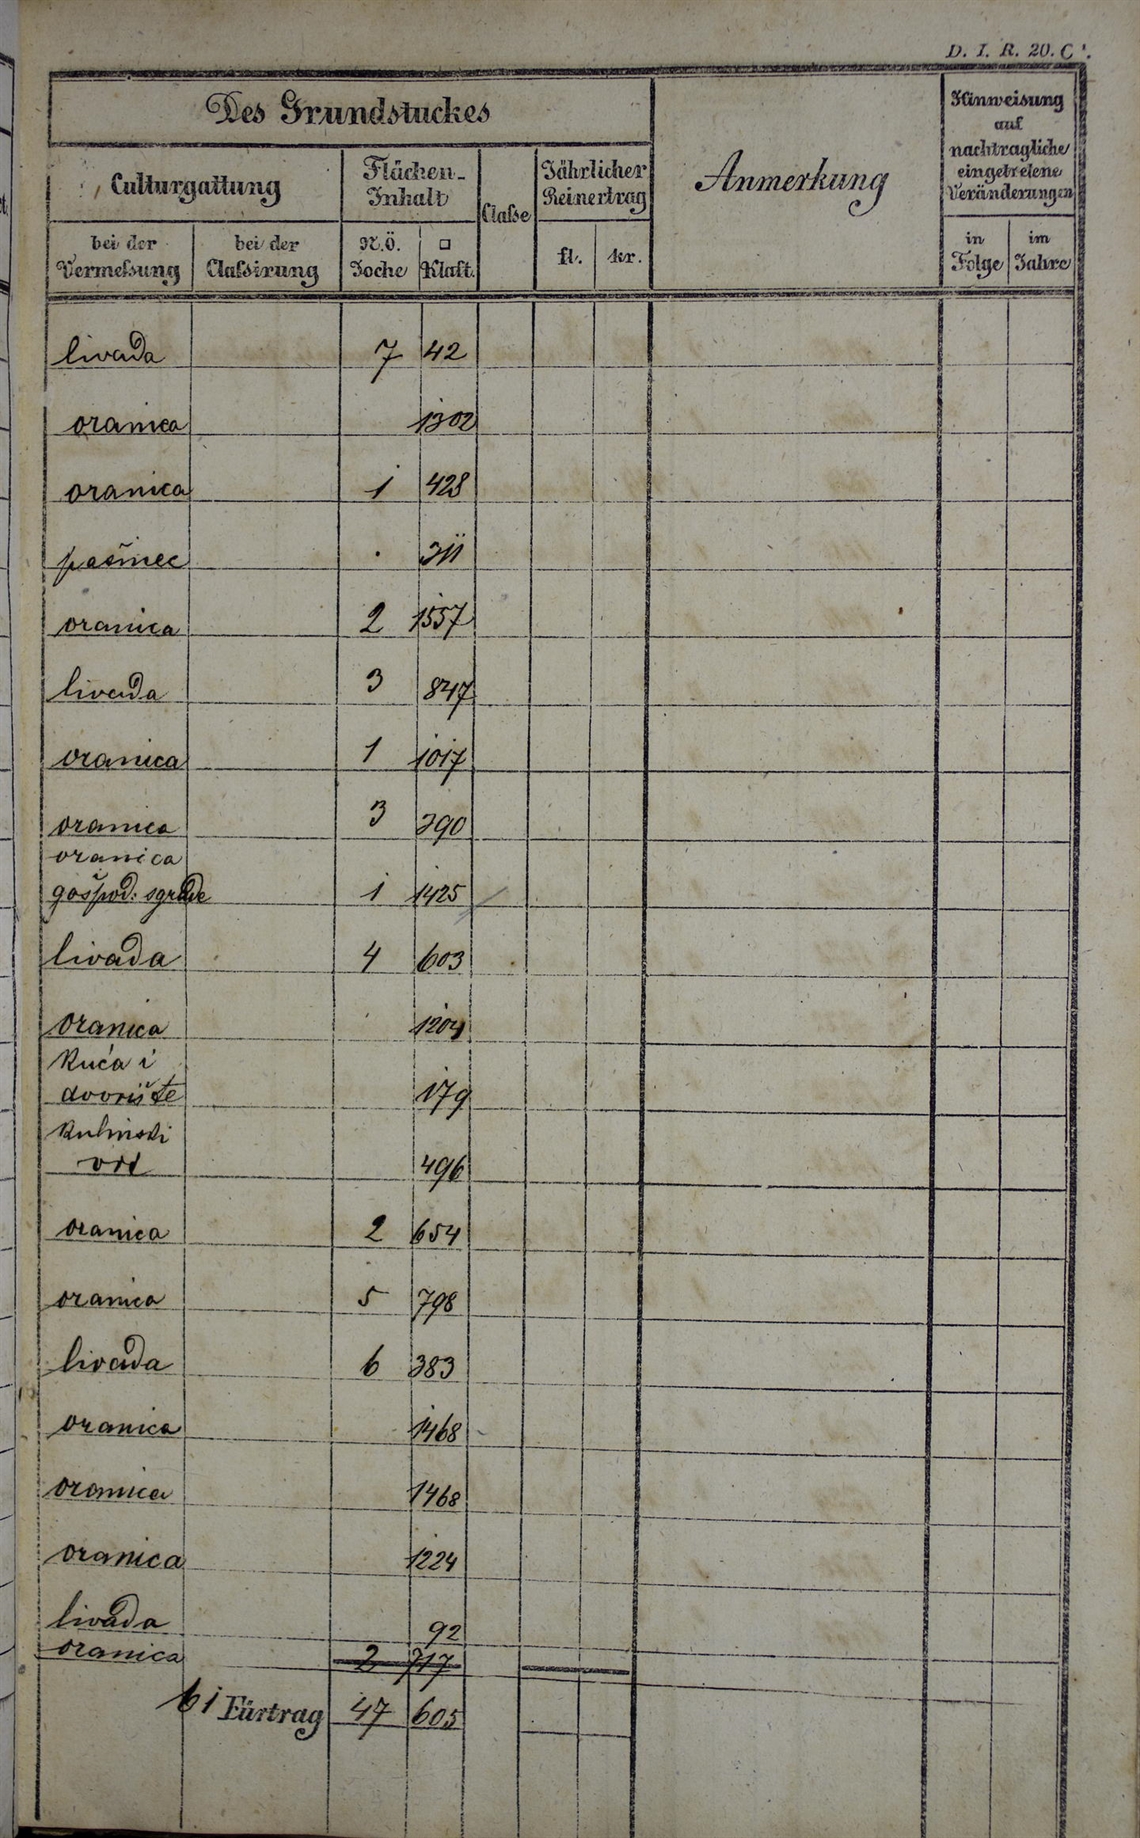 D. I. R. 20. C¹.
Des Grundstückes
Anmerkung
Hinweisung
auf
nachtragliche
eingetretene
Veränderungen
Culturgattung
Flächen-
Inhalt
Classe
Jährlicher
Reinertrag
bei der
Vermeßung
bei der
Claßirung
N.Ö.
Joche
□
Klaft.
fl.
kr.
in
Folge
im
Jahre
livada 7 42
oranica 1302
oranica 1 428
pašnec . 311
oranica 2 1557
livada 3 847
oranica 1 1017
oranica 3 390
oranica
gospod: sgrade 1 1425
livada 4 603
oranica 1204
Kuća i
dvorište 179
Kuhinski
vrt 496
oranica 2 654
oranica 5 798
livada 6 383
oranica 1468
oranica 1468
oranica 1224
livada 92
oranica 2 717
Fürtrag 47 605